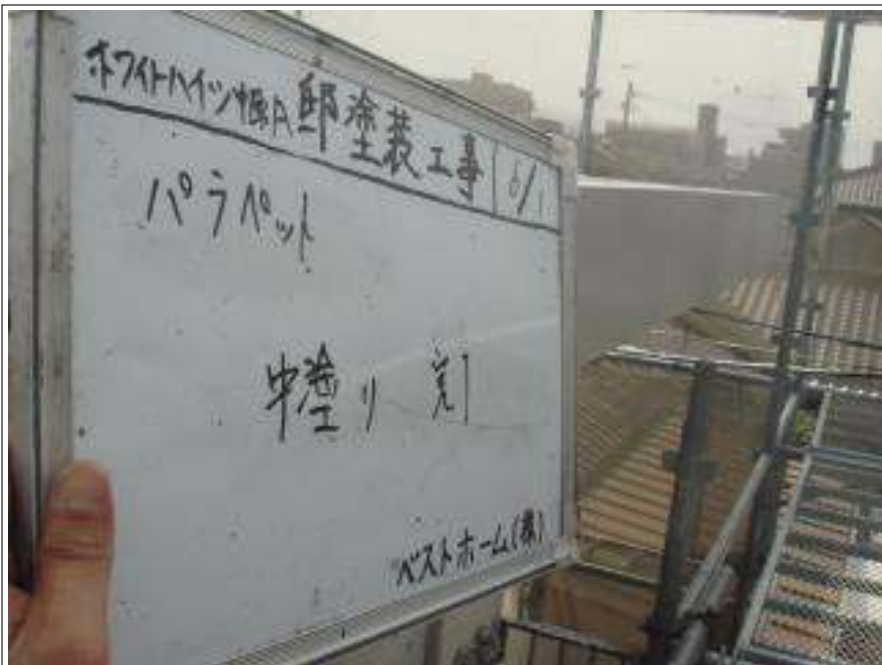 ホワイトハイツ堀A邸塗装工事 6/1
パラペット
中塗り 完了
ベストホーム(株)